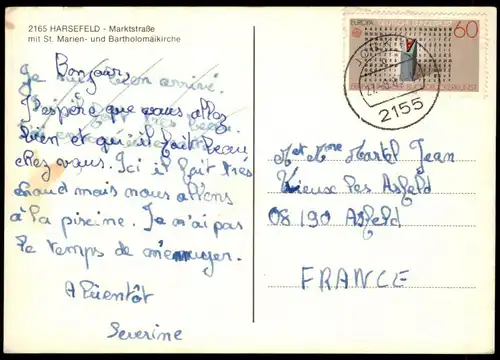 2165 HARSEFELD - Marktstraße
mit St. Marien- und Bartholomäikirche
Bonjour,
Je suis bien arrivé.
J'espère que vous allez
bien et qu'il fait beau
chez vous. Ici il fait très
chaud mais nous allons
à la piscine. Je n'ai pas
le temps de m'ennuyer.
A Bientôt
Severine
EUROPA
60
2155
Met Mme Martel Jean
Vieux les Asfeld
08190 Asfeld
FRANCE